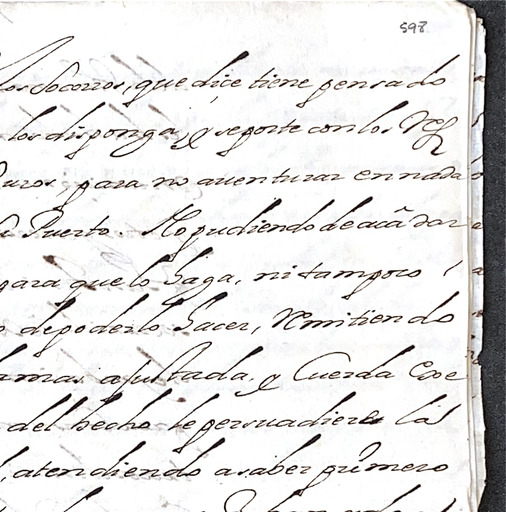 598
los Socorros, que diçe tiene pensado
los disponga, y se porte con los
para no aventurar en nada
Puerto. No pudiendo de acá dar
para que lo haga, ni tampoco
de poderlo hacer, Remitiendo
ajustada, y Cuerda
del hecho le persuadiere la
, atendiendo a saber primero